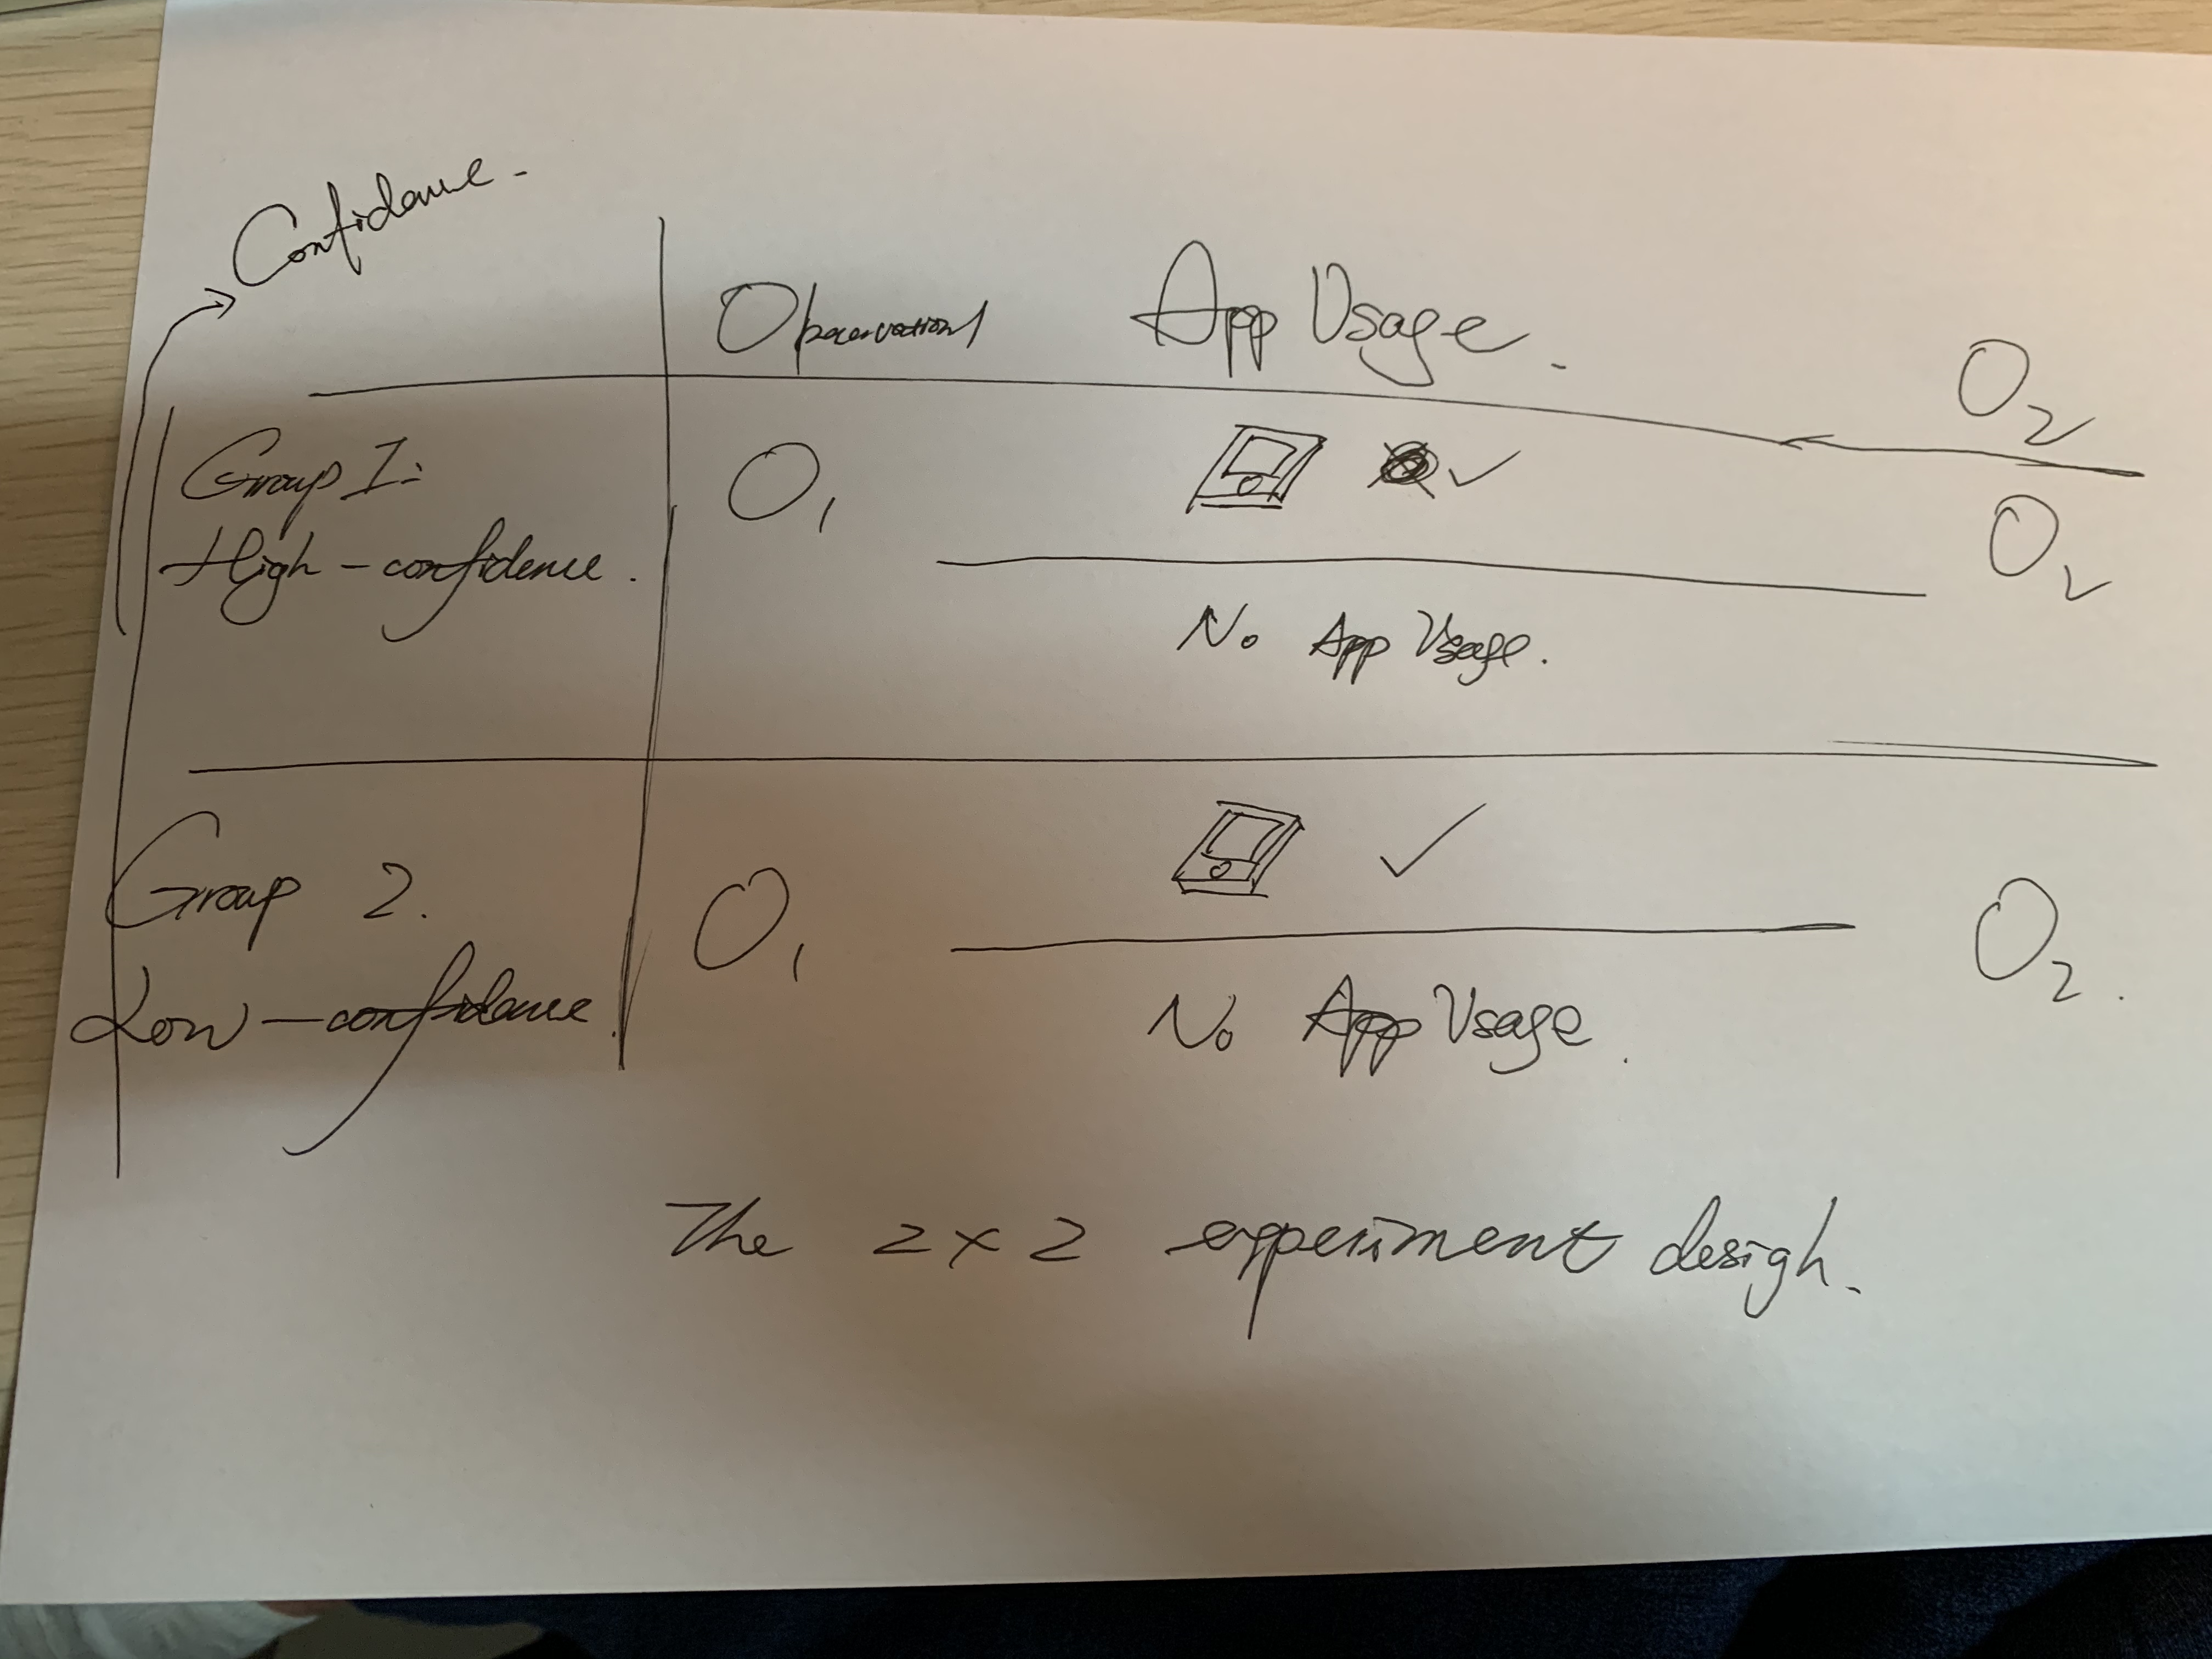 Confidence.
Observation1 App Usage. O2
Group 1:
High-confidence.
O1 ✓ O2
No App Usage.
Group 2.
Low-confidence.
O1 ✓ O2.
No App Usage.
The 2×2 experiment design.